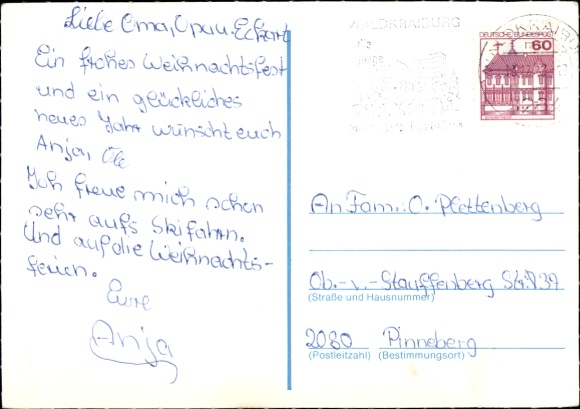 Liebe Oma, Opa u. Eckart
Ein frohes Weihnachtsfest
und ein glückliches
neues Jahr wünscht euch
Anja,
Ich freue mich schon
sehr aufs Skifahrn.
Und auf die Weihnachts-
ferien.
Eure
Anja
WALDKRAIBURG
die
junge
DEUTSCHE BUNDESPOST
60
An Fam. O. Plettenberg
Ob.-v.-Stauffenberg Str. 37
(Straße und Hausnummer)
2080 Pinneberg
(Postleitzahl) (Bestimmungsort)